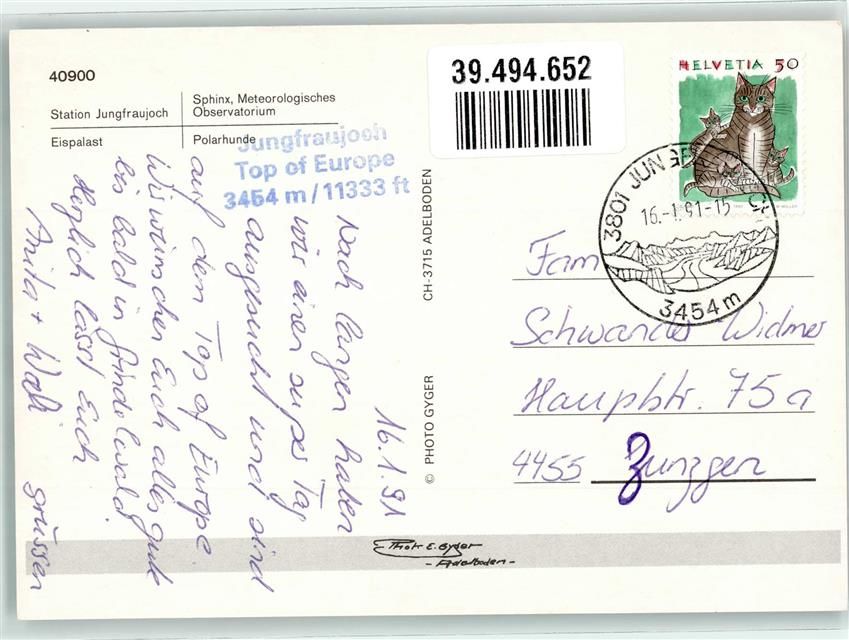 40900
Station Jungfraujoch
Sphinx, Meteorologisches
Observatorium
Eispalast
Polarhunde
Jungfraujoch
Top of Europe
3454 m / 11333 ft
39.494.652
HELVETIA 50
3801 JUNGF
16.-1.91-15
3454 m
CH-3715 ADELBODEN
© PHOTO GYGER
16.1.91
Nach langen haben
wir einen super Tag
ausgesucht und sind
auf dem Top of Europe.
Wir wünschen Euch alles gute
bis bald in Grindelwald.
Herzlich lässt Euch
Anita + Walti grüssen
Fam
Schwander Widmer
Hauptstr. 75a
4455 Zunzgen
Photo E. Gyger
- Adelboden -